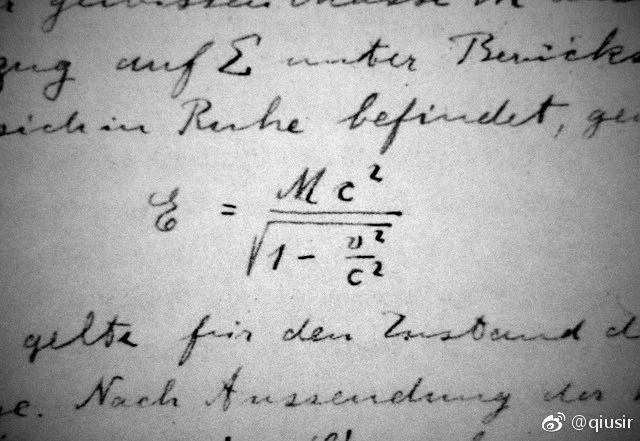 gewissen Masse M
zug auf Σ unter Berücks
sich in Ruhe befindet, gen
E = Mc² / √(1 - v²/c²)
gelte für den Zustand d
se. Nach Aussendung der
@qiusir